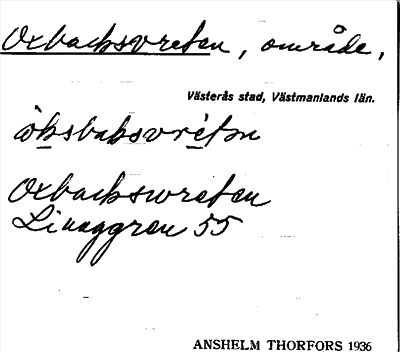 Oxbacksvreten, område,
Västerås stad, Västmanlands län.
Oxbackswreten
Linaggren 55
ANSHELM THORFORS 1936